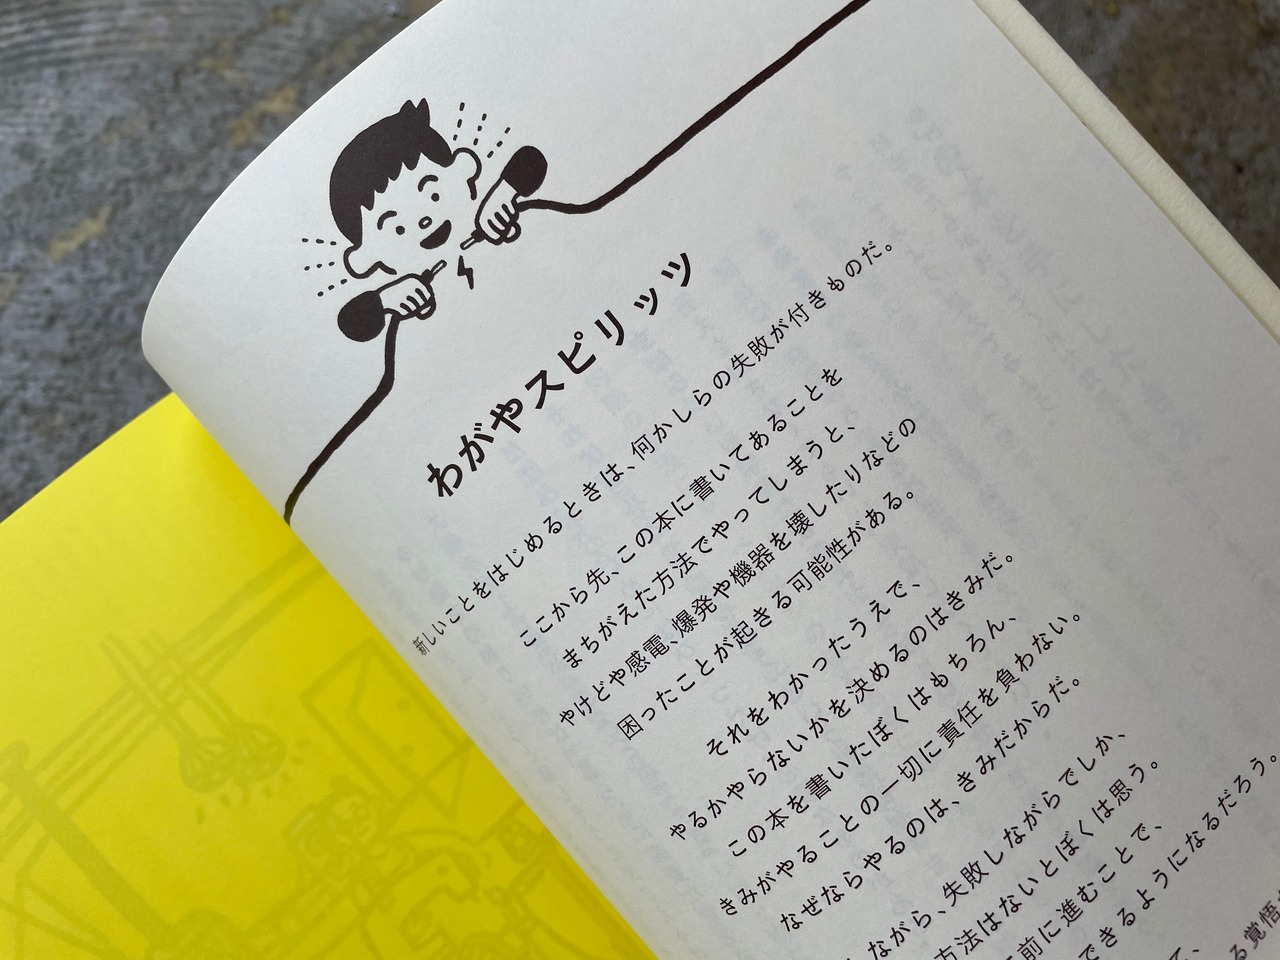 わがやスピリッツ
新しいことをはじめるときは、何かしらの失敗が付きものだ。
ここから先、この本に書いてあることを
まちがえた方法でやってしまうと、
やけどや感電、爆発や機器を壊したりなどの
困ったことが起きる可能性がある。
それをわかったうえで、
やるかやらないかを決めるのはきみだ。
この本を書いたぼくはもちろん、
きみがやることの一切に責任を負わない。
なぜならやるのは、きみだからだ。
ながら、失敗しながらでしか、
方法はないとぼくは思う。
前に進むことで、
できるようになるだろう。
て、
る覚悟